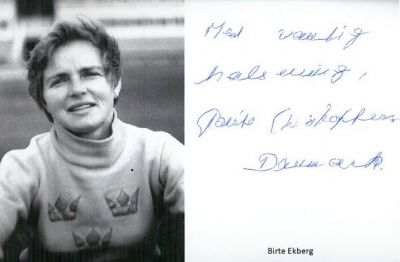 Med venlig
hilsening,
Birte Christoffersen
Danmark.
Birte Ekberg